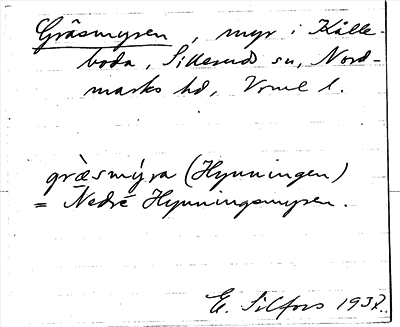 Gräsmyren, myr i Kålle-
boda, Sillerud sn, Nord-
marks hd, Vrml l.
græ̀smýra (Hynningen)
= Nedre Hynningsmyren.
E. Silfors 1937.